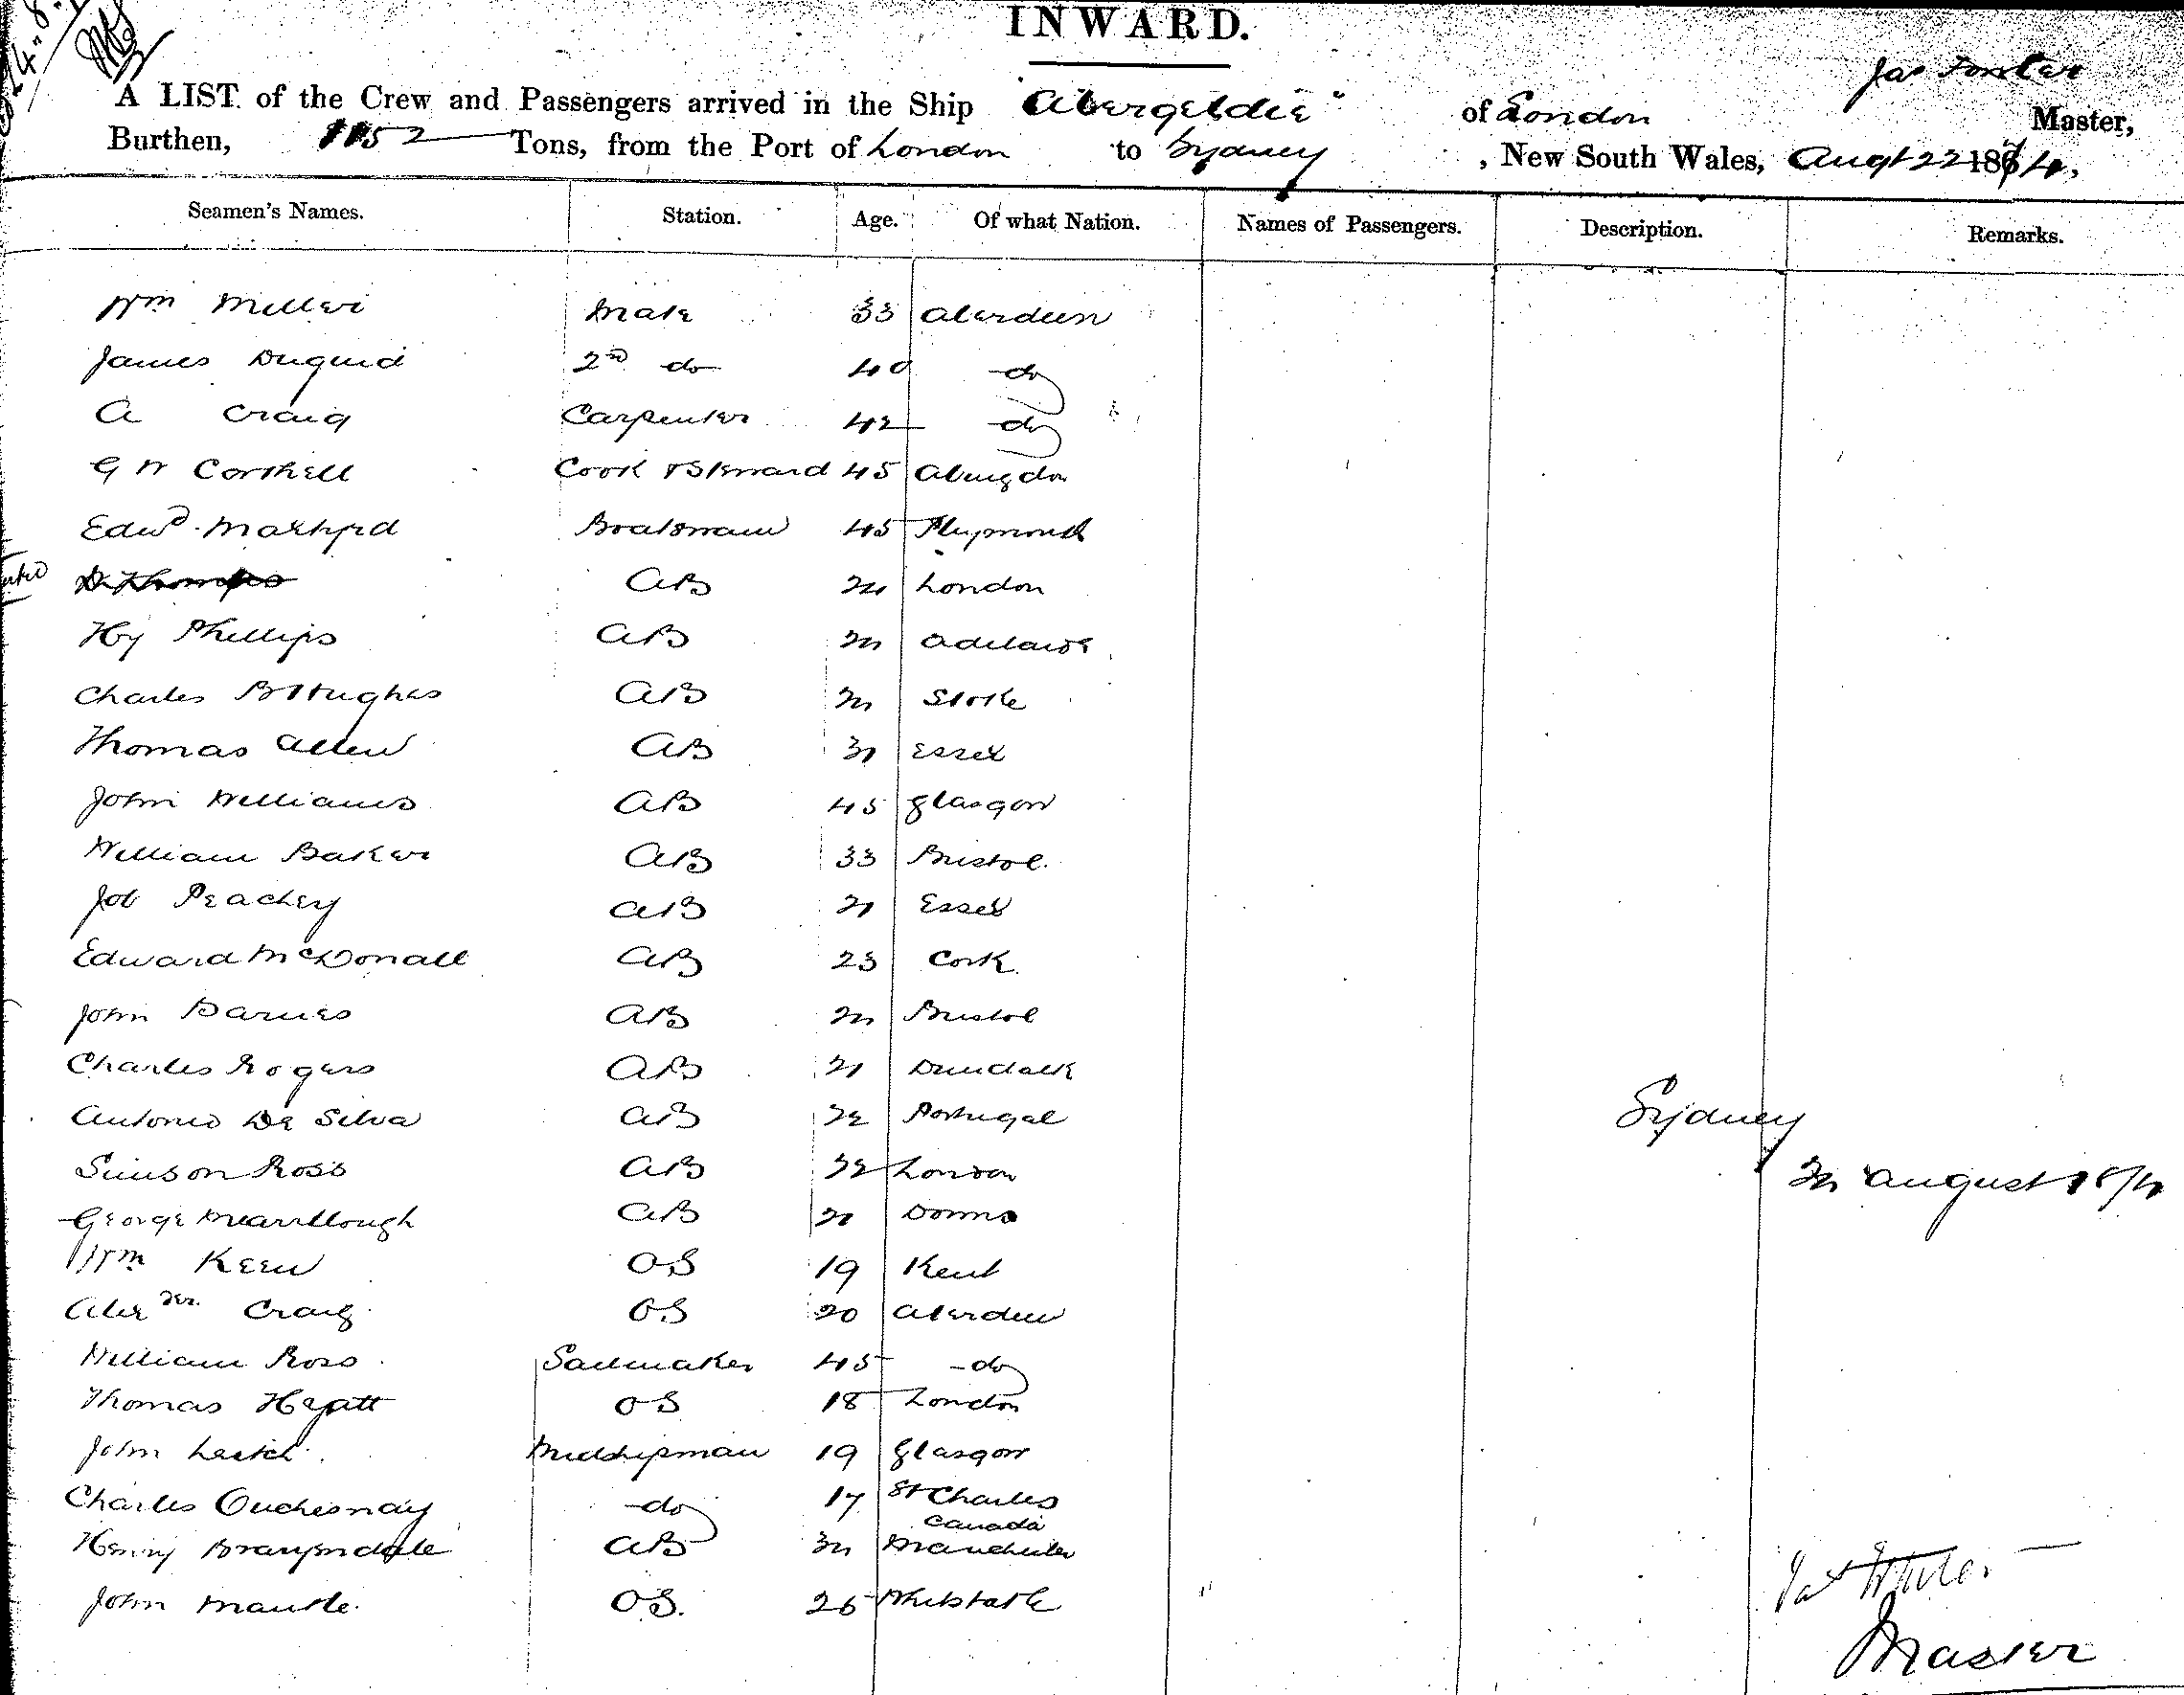 INWARD.
Jas Forster
A LIST of the Crew and Passengers arrived in the Ship "Abergeldie" of London Master,
Burthen, 1152 Tons, from the Port of London to Sydney, New South Wales, Augt 22 1874,
Seamen's Names. Station. Age. Of what Nation. Names of Passengers. Description. Remarks.
Wm Miller Mate 33 Aberdeen
James Duguid 2nd do 40 do
A Craig Carpenter 42 do
G W Corthell Cook & Steward 45 Abingdon
Edwd Boatswain 45 Plymouth
AB 24 London
Hy Phillips AB Adelaide
Charles B Hughes AB Stoke
Thomas Allen AB 31 Essex
John Williams AB 45 Glasgow
William Baker AB 33 Bristol
Job Peachey AB 21 Essex
Edward McDonall AB 23 Cork
John Barnes AB Bristol
Charles Rogers AB 21 Dundalk
Antonio De Silva AB 22 Portugal
Sydney
Simson Ross AB 22 London
August 1874
George AB 21
Wm Keen OS 19 Kent
Craig OS 20 Aberdeen
William Ross Sailmaker 45 do
Thomas Hyatt OS 18 London
John Leitch Midshipman 19 Glasgow
Charles Duchesnay do 17 St Charles
Canada
Henry AB Manchester
John Mantle OS. 26 Whitstable
Master